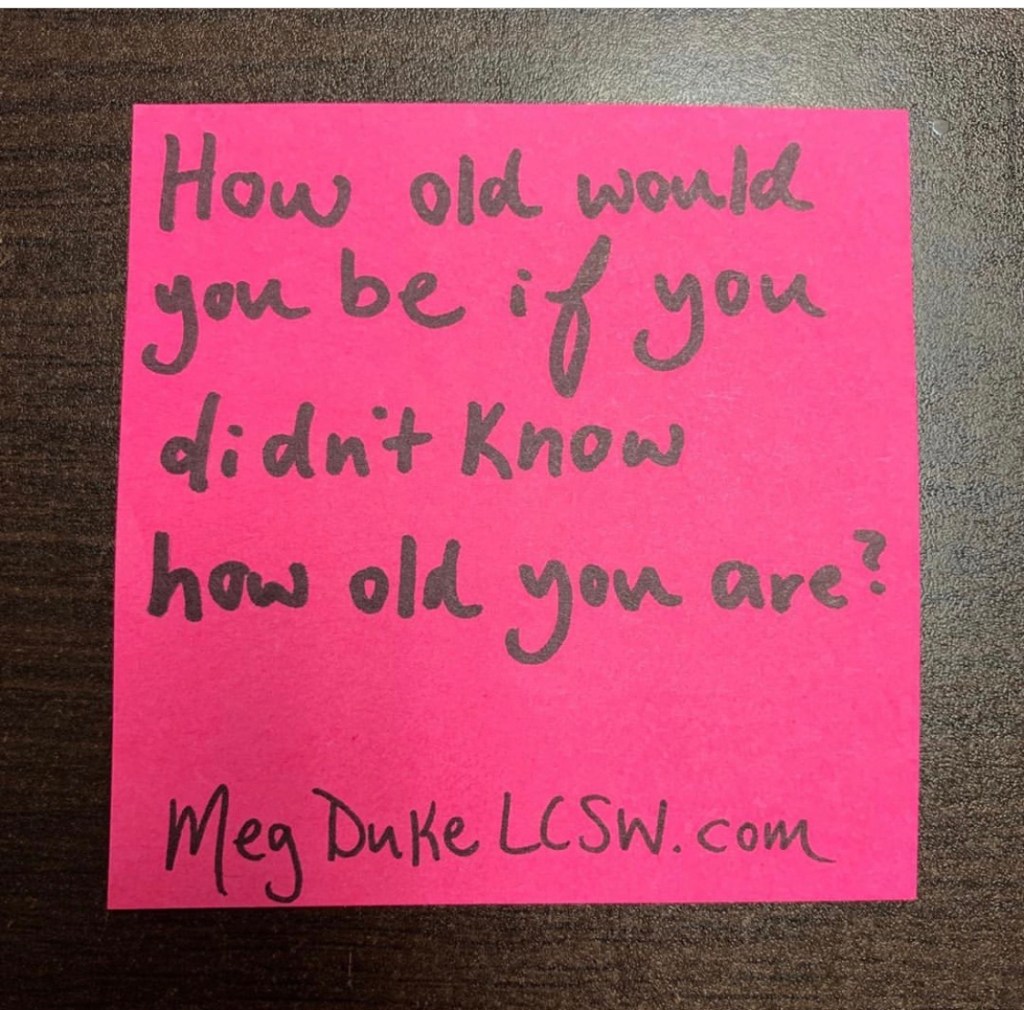 How old would
you be if you
didn't know
how old you are?
Meg Duke LCSW.com